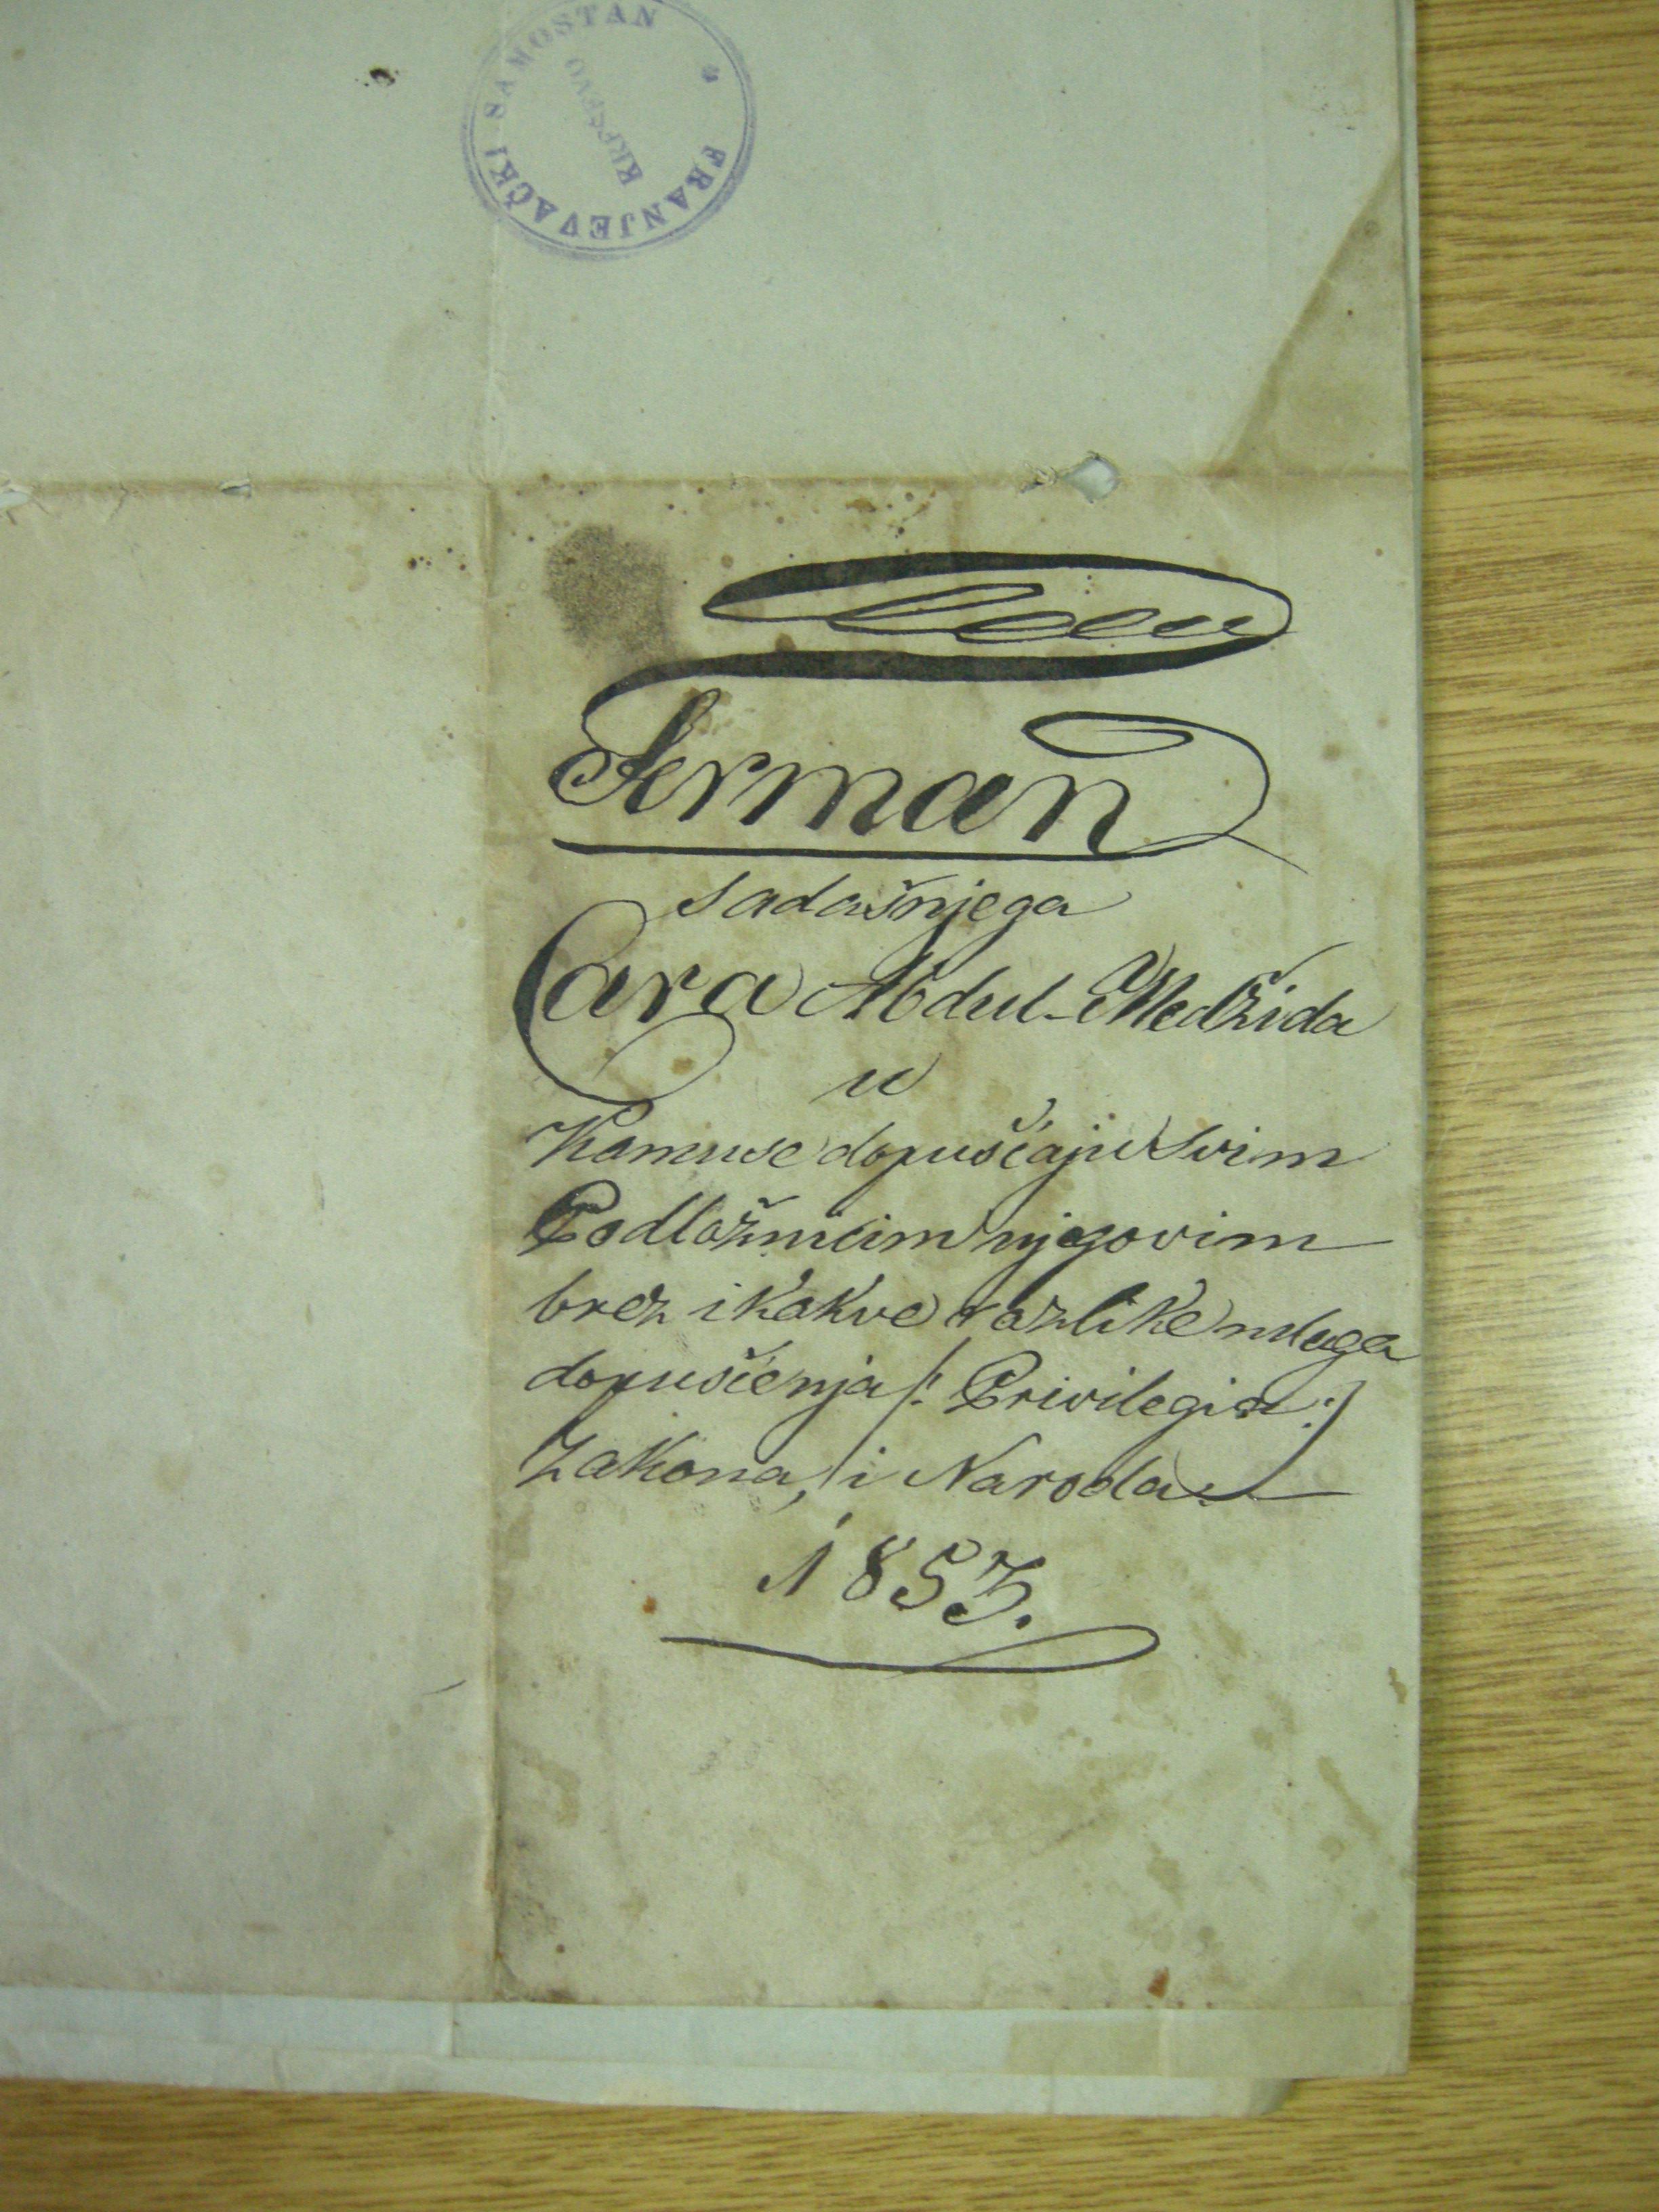 FRANJEVAČKI SAMOSTAN
KREŠEVO
Ferman
sadašnjega
Cara Abdul-Medžida
u
Komuse dopušćaju svim
Podložnicim njegovim
brez ikakve razlike mloga
dopušćenja /: Privilegia :/
Zakona, i Naroda
1853.